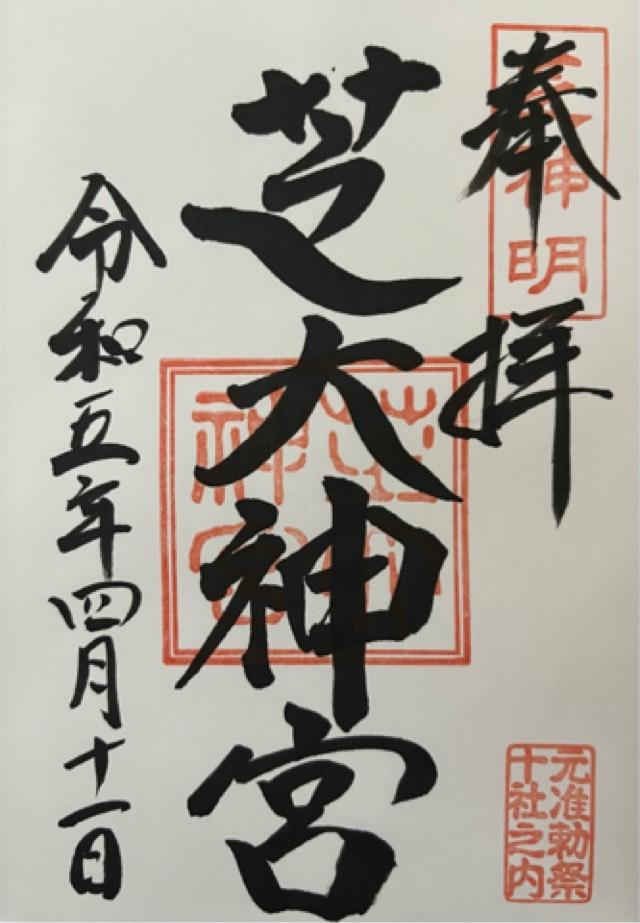 奉拝
芝神明
芝大神宮
令和五年四月十一日
元准勅祭
十社之内